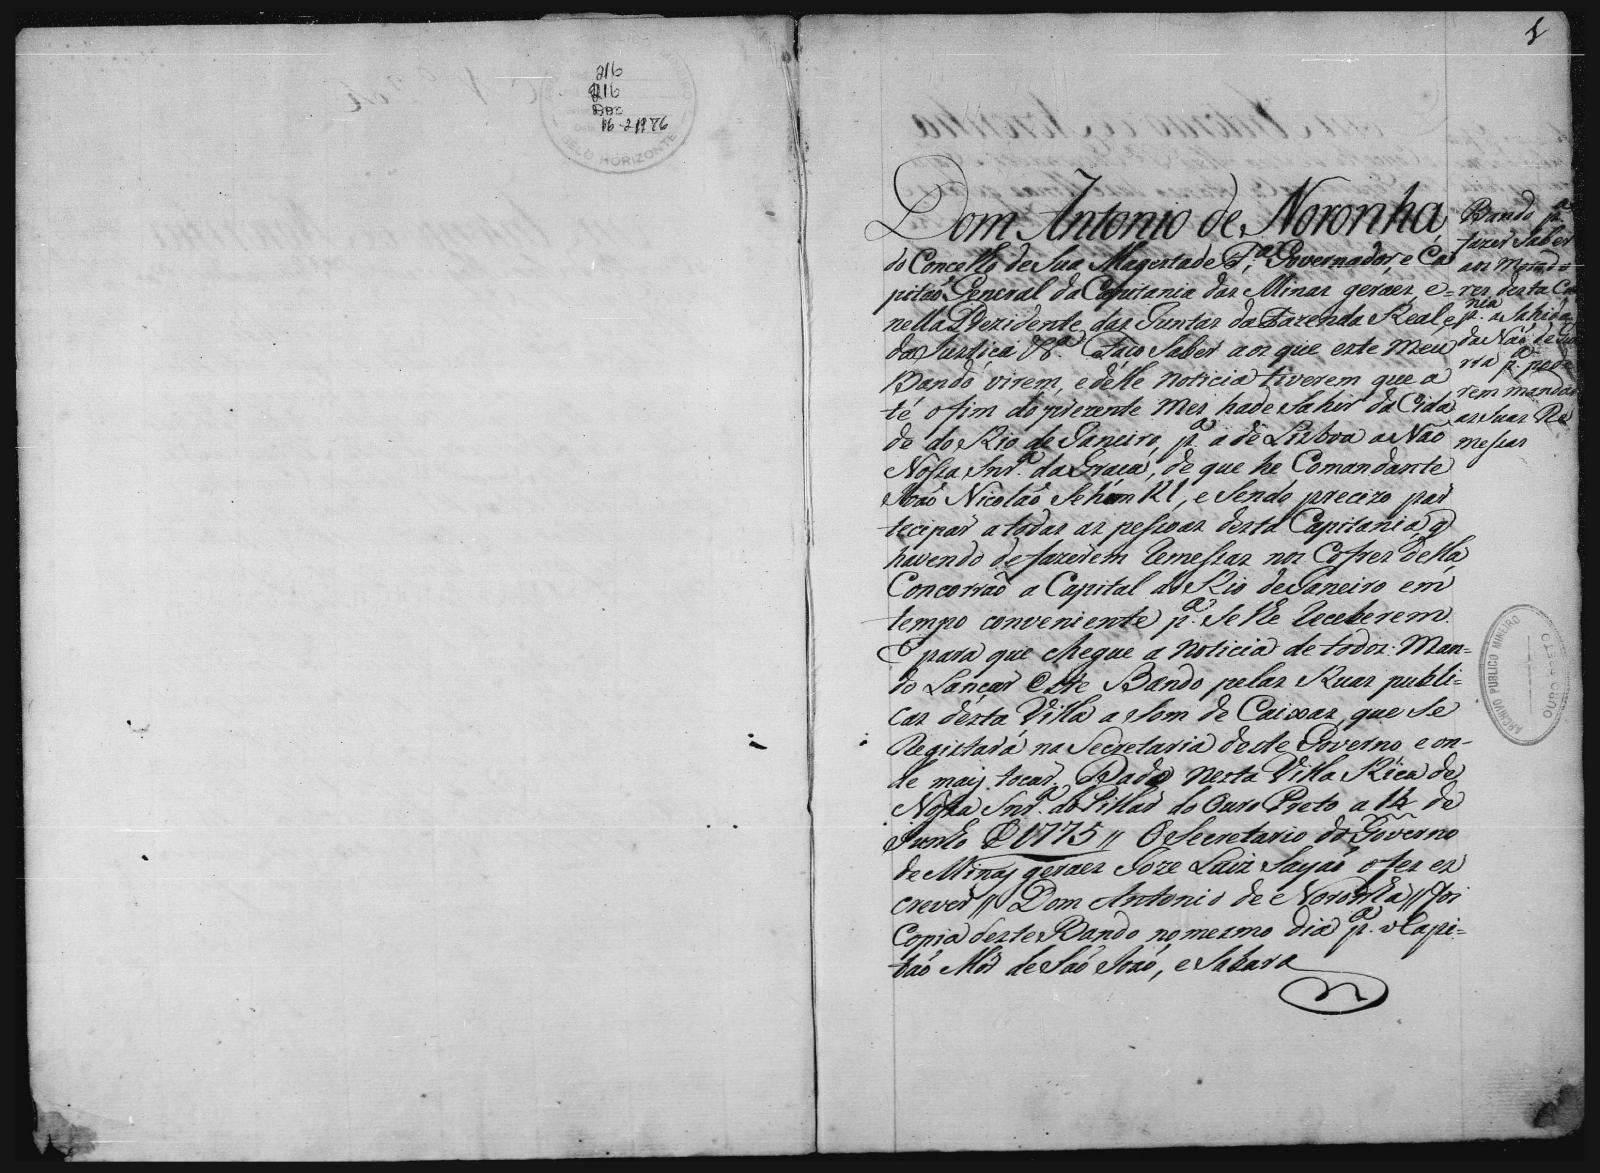 216
216
DOC
16-2-1976
BELO HORIZONTE
1
Dom Antonio de Noronha,
do Concelho de Sua Magestade F.ª Governador, e Ca
pitaõ General da Capitania das Minas geraes, e=
nella Prezidente das Juntas da Fazenda Real, e
da Justiça &.ª Faço Saber aos que este meu
Bando virem, e delle noticia tiverem que a
té o fim do prezente mez hade Sahir da Cida
de do Rio de Janeiro, p.ª a de Lisboa a Náo
Nossa Snr.ª da Graça, de que he Comandante
Joaõ Nicoláo Schim Kl, e Sendo precizo par
tecipar a todas as pessoas desta Capitania, q̃
havendo de fazerem Remessas nos Cofres della
Concorraõ a Capital do Rio de Janeiro em
tempo conveniente p.ª Se lhe Receberem.
E para que chegue a noticia de todos: Man=
do Lançar Este Bando pelas Ruas publi=
cas desta Villa a Som de Caixas, que Se
Registará na Secretaria deste Governo e on-
de mais tocar. Dado Nesta Villa Rica de
Nossa Snr.ª do Pillar do Ouro Preto a 14 de
Junho D 1775 // O Secretario do Governo
de Minas geraes Joze Luiz Sayaõ o fez es
crever // Dom Antonio de Noronha // Foi
Copia deste Bando no mesmo dia p.ª o Capi=
taõ Mór de Saõ Joaõ, e Sabara
Bando p.ª
fazer Saber
aos Morado
res desta Ca
p.nia a Sahida
da Náo de Gu
rra p.ª pode
rem mandar
as Suas Re
messas
ARCHIVO PUBLICO MINEIRO
OURO PRETO